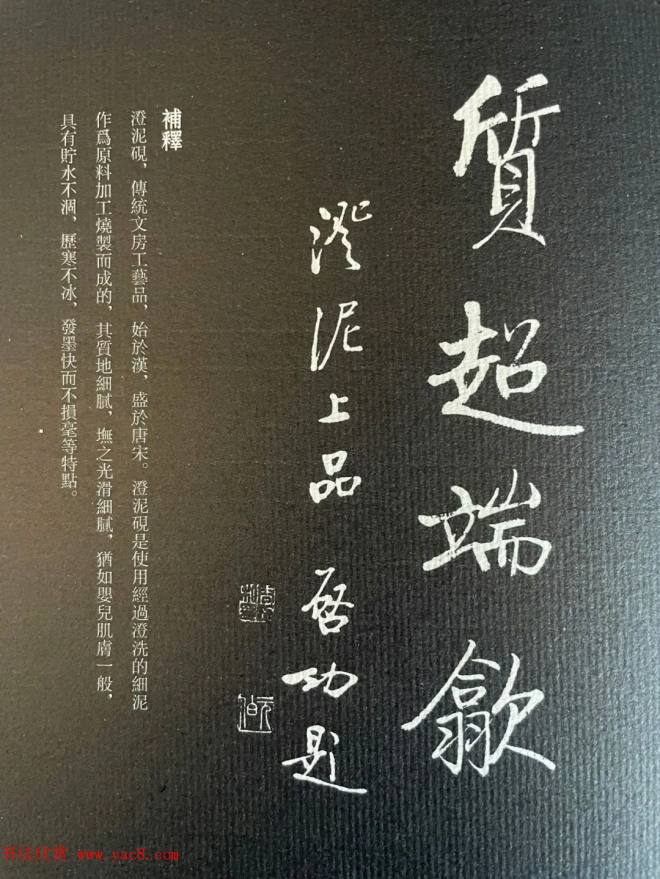 質超端歙
澄泥上品 啓功題
補釋
澄泥硯，傳統文房工藝品，始於漢，盛於唐宋。澄泥硯是使用經過澄洗的細泥
作爲原料加工燒製而成的，其質地細膩，撫之光滑細膩，猶如嬰兒肌膚一般，
具有貯水不涸，歷寒不冰，發墨快而不損毫等特點。
书法欣赏 www.yac8.com